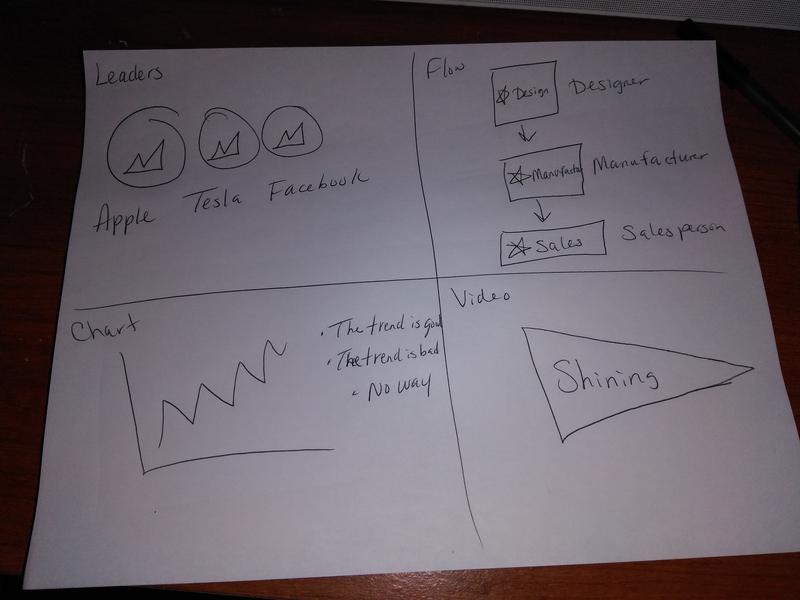 Leaders
Apple
Tesla
Facebook
Flow
Design
Designer
Manufactu
Manufacturer
Sales
Sales person
Chart
• The trend is good
• The trend is bad
• No way
Video
Shining